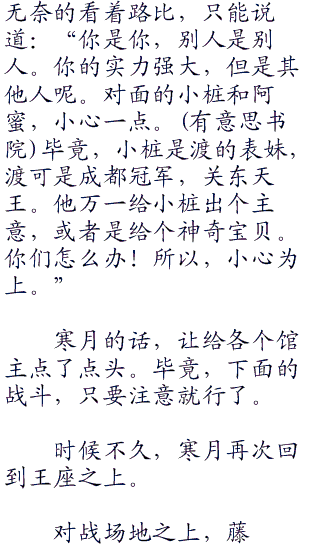 无奈的看着路比，只能说
道：“你是你，别人是别
人。你的实力强大，但是其
他人呢。对面的小桩和阿
蜜，小心一点。(有意思书
院)毕竟，小桩是渡的表妹，
渡可是成都冠军，关东天
王。他万一给小桩出个主
意，或者是给个神奇宝贝。
你们怎么办！所以，小心为
上。”
寒月的话，让给各个馆
主点了点头。毕竟，下面的
战斗，只要注意就行了。
时候不久，寒月再次回
到王座之上。
对战场地之上，藤